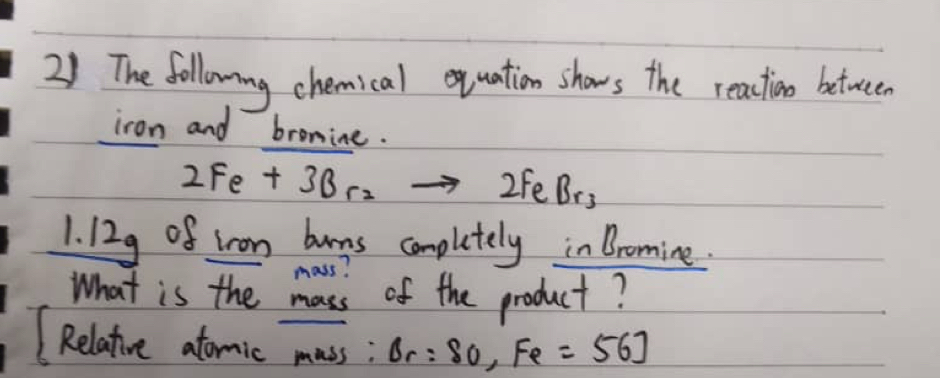 2) The following chemical equation shows the reaction between
iron and bromine.
2Fe + 3Br2 → 2FeBr3
1.12g of iron burns completely in Bromine.
mass?
What is the mass of the product?
[Relative atomic mass : Br = 80, Fe = 56]